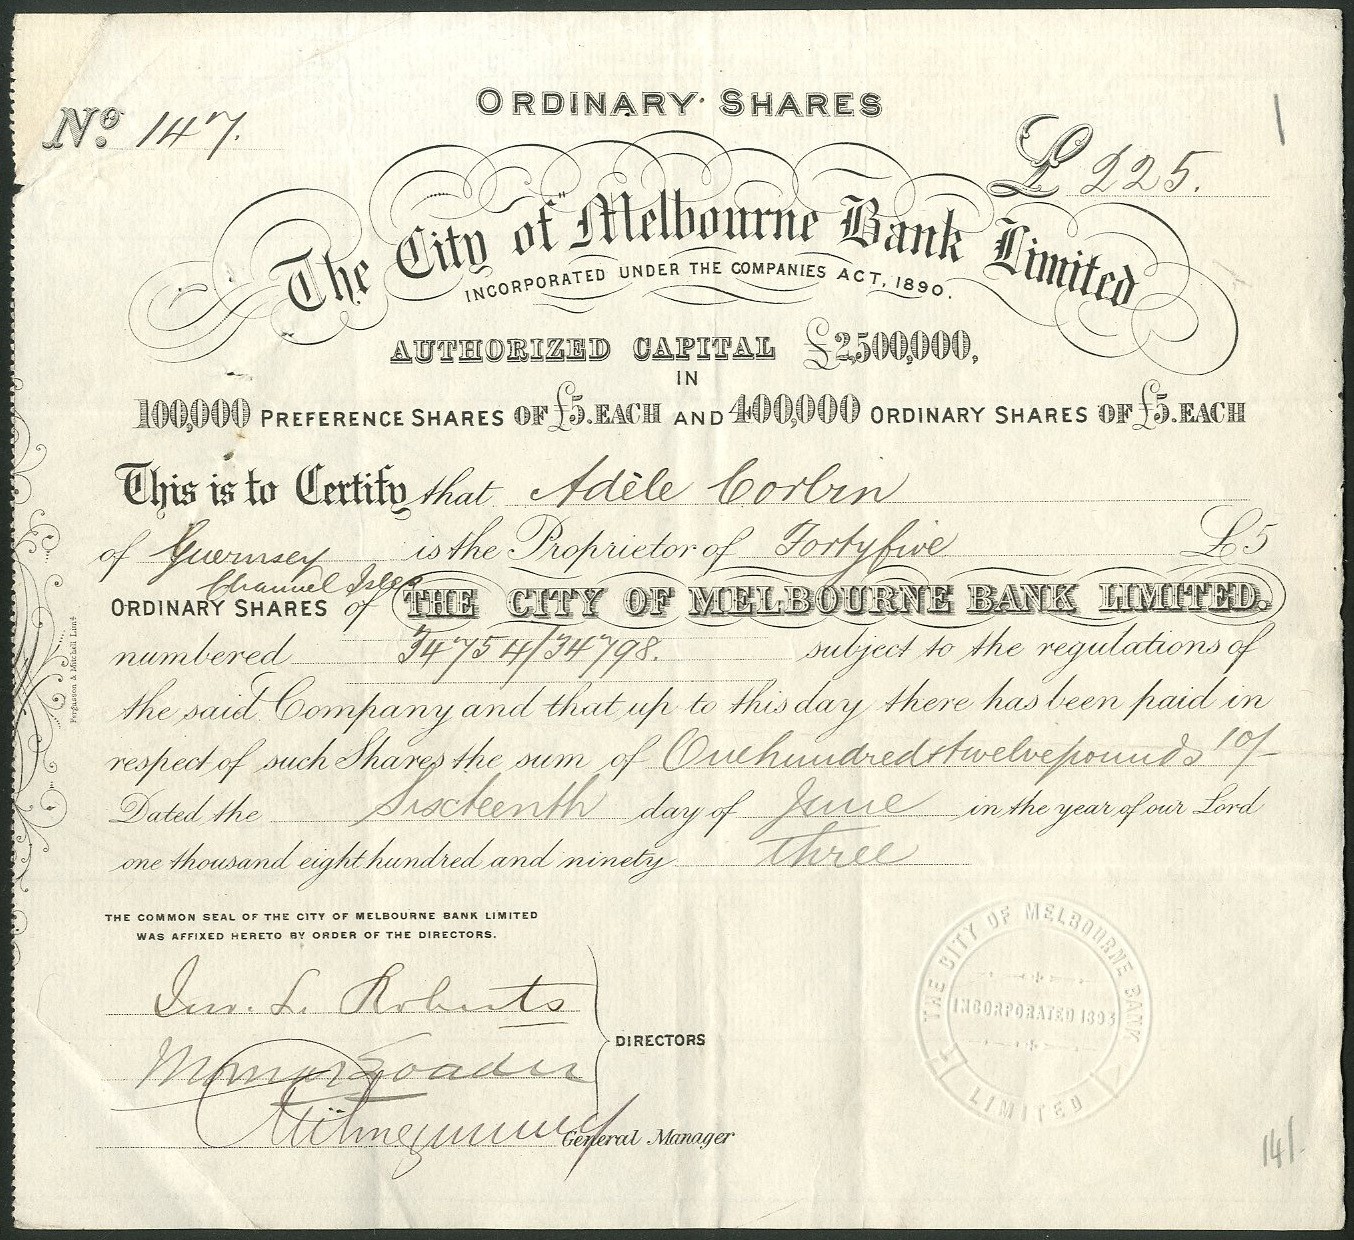 ORDINARY SHARES
No. 147.
£ 225.
The City of Melbourne Bank Limited
INCORPORATED UNDER THE COMPANIES ACT, 1890.
AUTHORIZED CAPITAL £2,500,000,
IN
100,000 PREFERENCE SHARES OF £5. EACH AND 400,000 ORDINARY SHARES OF £5. EACH
This is to Certify that Adèle Corbin
of Guernsey is the Proprietor of Fortyfive £5
Channel Isles
ORDINARY SHARES of THE CITY OF MELBOURNE BANK LIMITED.
numbered 34754/34798. subject to the regulations of
the said Company and that up to this day there has been paid in
respect of such Shares the sum of One hundred & twelve pounds 10/-
Dated the Sixteenth day of June in the year of our Lord
one thousand eight hundred and ninety three
THE COMMON SEAL OF THE CITY OF MELBOURNE BANK LIMITED
WAS AFFIXED HERETO BY ORDER OF THE DIRECTORS.
Jno. S. Roberts
DIRECTORS
General Manager
THE CITY OF MELBOURNE BANK
INCORPORATED 1893
LIMITED
Fergusson & Mitchell Limd